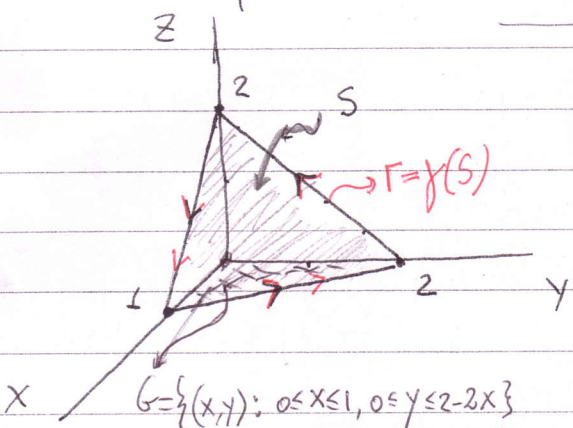 Z
2
S
Γ=γ(S)
1
2
Y
X
G={(x,y): 0≤x≤1, 0≤y≤2-2x}